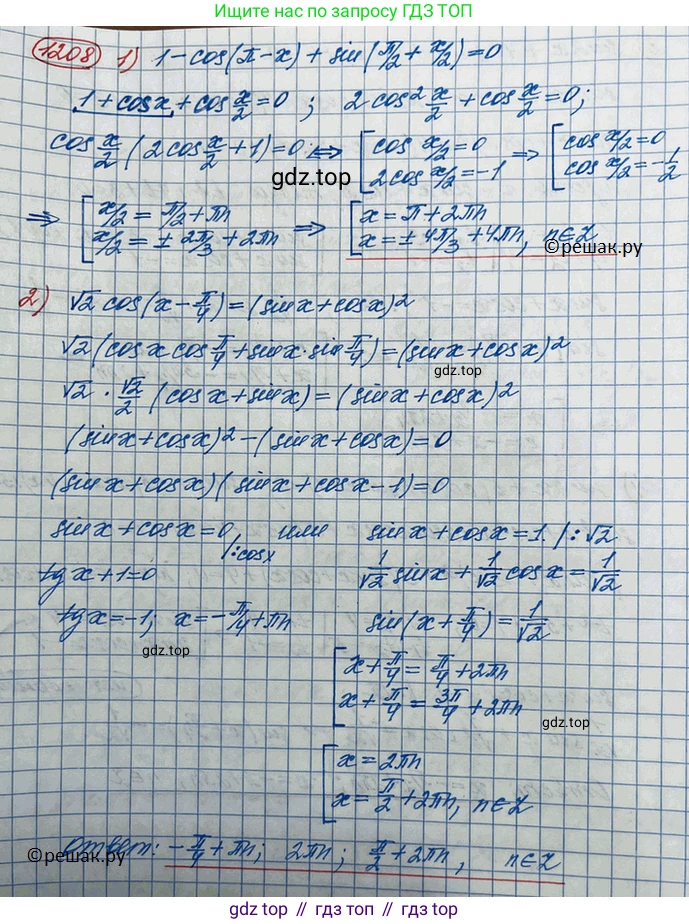 Больше решений по запросу ГДЗ ТОП
1208 1) 1-cos(π-x)+sin(π/2+x/2)=0
1+cosx+cos x/2=0; 2cos² x/2+cos x/2=0;
cos x/2 (2cos x/2+1)=0 ⇔ [cos x/2=0 2cos x/2=-1 ⇒ [cos x/2=0 cos x/2=-1/2
gdz.top
⇒ [x/2=π/2+πn x/2=±2π/3+2πn ⇒ [x=π+2πn x=±4π/3+4πn, n∈Z
©решак.ру
2) √2 cos(x-π/4)=(sinx+cosx)²
√2(cosx cos π/4+sinx·sin π/4)=(sinx+cosx)²
√2·√2/2 (cosx+sinx)=(sinx+cosx)²
(sinx+cosx)²-(sinx+cosx)=0
(sinx+cosx)(sinx+cosx-1)=0
sinx+cosx=0 /:cosx или sinx+cosx=1 /:√2
tgx+1=0 1/√2 sinx+1/√2 cosx=1/√2
tgx=-1; x=-π/4+πn sin(x+π/4)=1/√2
gdz.top
[x+π/4=π/4+2πn
x+π/4=3π/4+2πn
gdz.top
[x=2πn
x=π/2+2πn, n∈Z
Ответ: -π/4+πn; 2πn; π/2+2πn, n∈Z
©решак.ру
gdz.top // гдз.топ // гдз.top